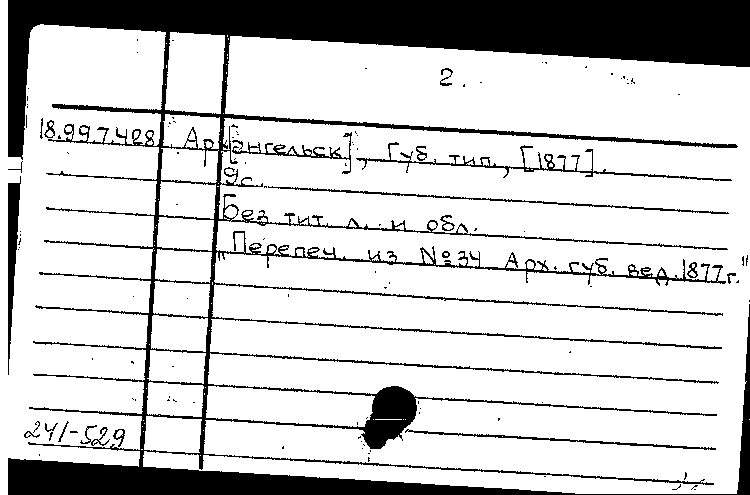 2.
18.99.7.428 Арх[ангельск], Губ. тип., [1877].
9с.
Без тит. л. и обл.
"Перепеч. из №34 Арх. губ. вед. 1877г."
241-529